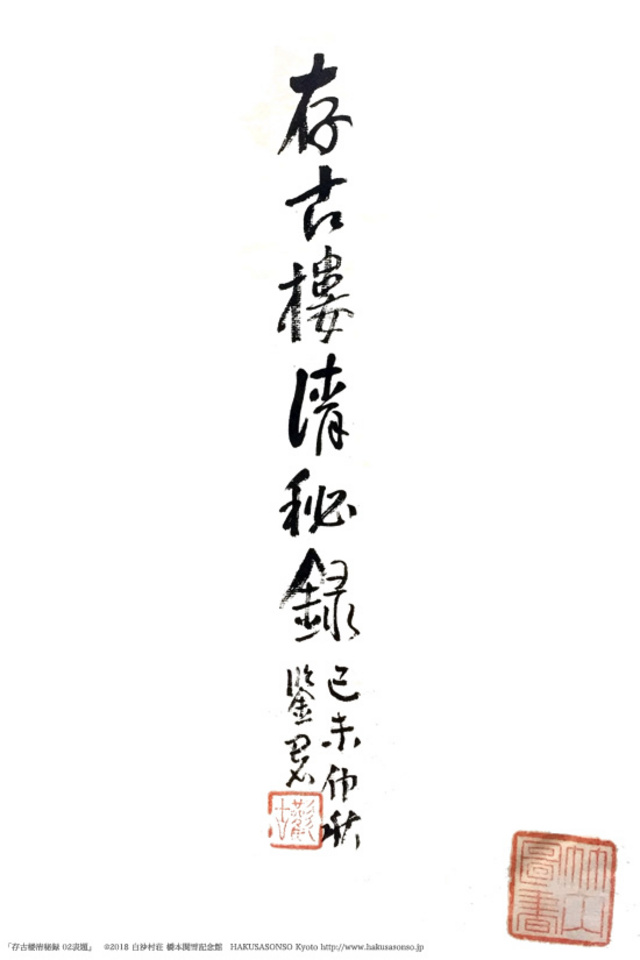 存古樓清秘録
己未仲秋
「存古楼清秘録 02表題」 ©2018 白沙村荘 橋本関雪記念館 HAKUSASONSO Kyoto http://www.hakusasonso.jp